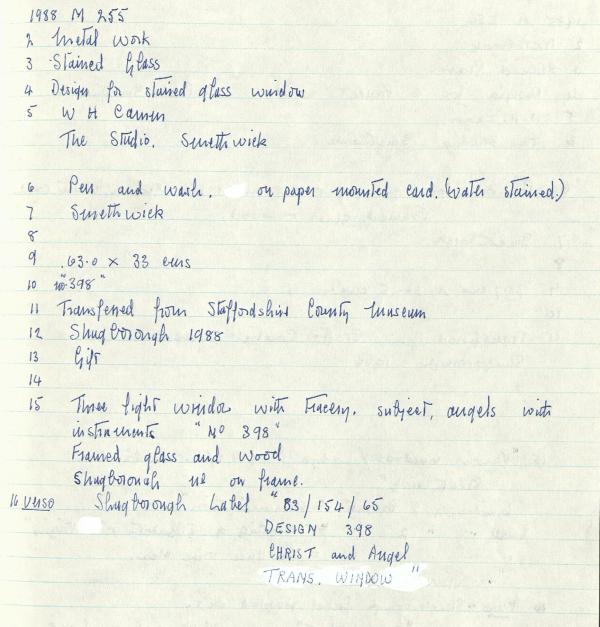 1988 M 255
2 Metal Work
3 Stained Glass
4 Design for stained glass window
5 W H Camm
The Studio. Smethwick
6 Pen and wash. on paper mounted card. (water stained.)
7 Smethwick
8
9 .63.0 x 33 cms
10 "398"
11 Transferred from Staffordshire County Museum
12 Shugborough 1988
13 Gift
14
15 Three light window with Tracery. subject, angels with
instruments "No 398"
Framed glass and wood
Shugborough on frame.
16 Verso Shugborough Label "83/154/65
DESIGN 398
CHRIST and Angel
TRANS. WINDOW"